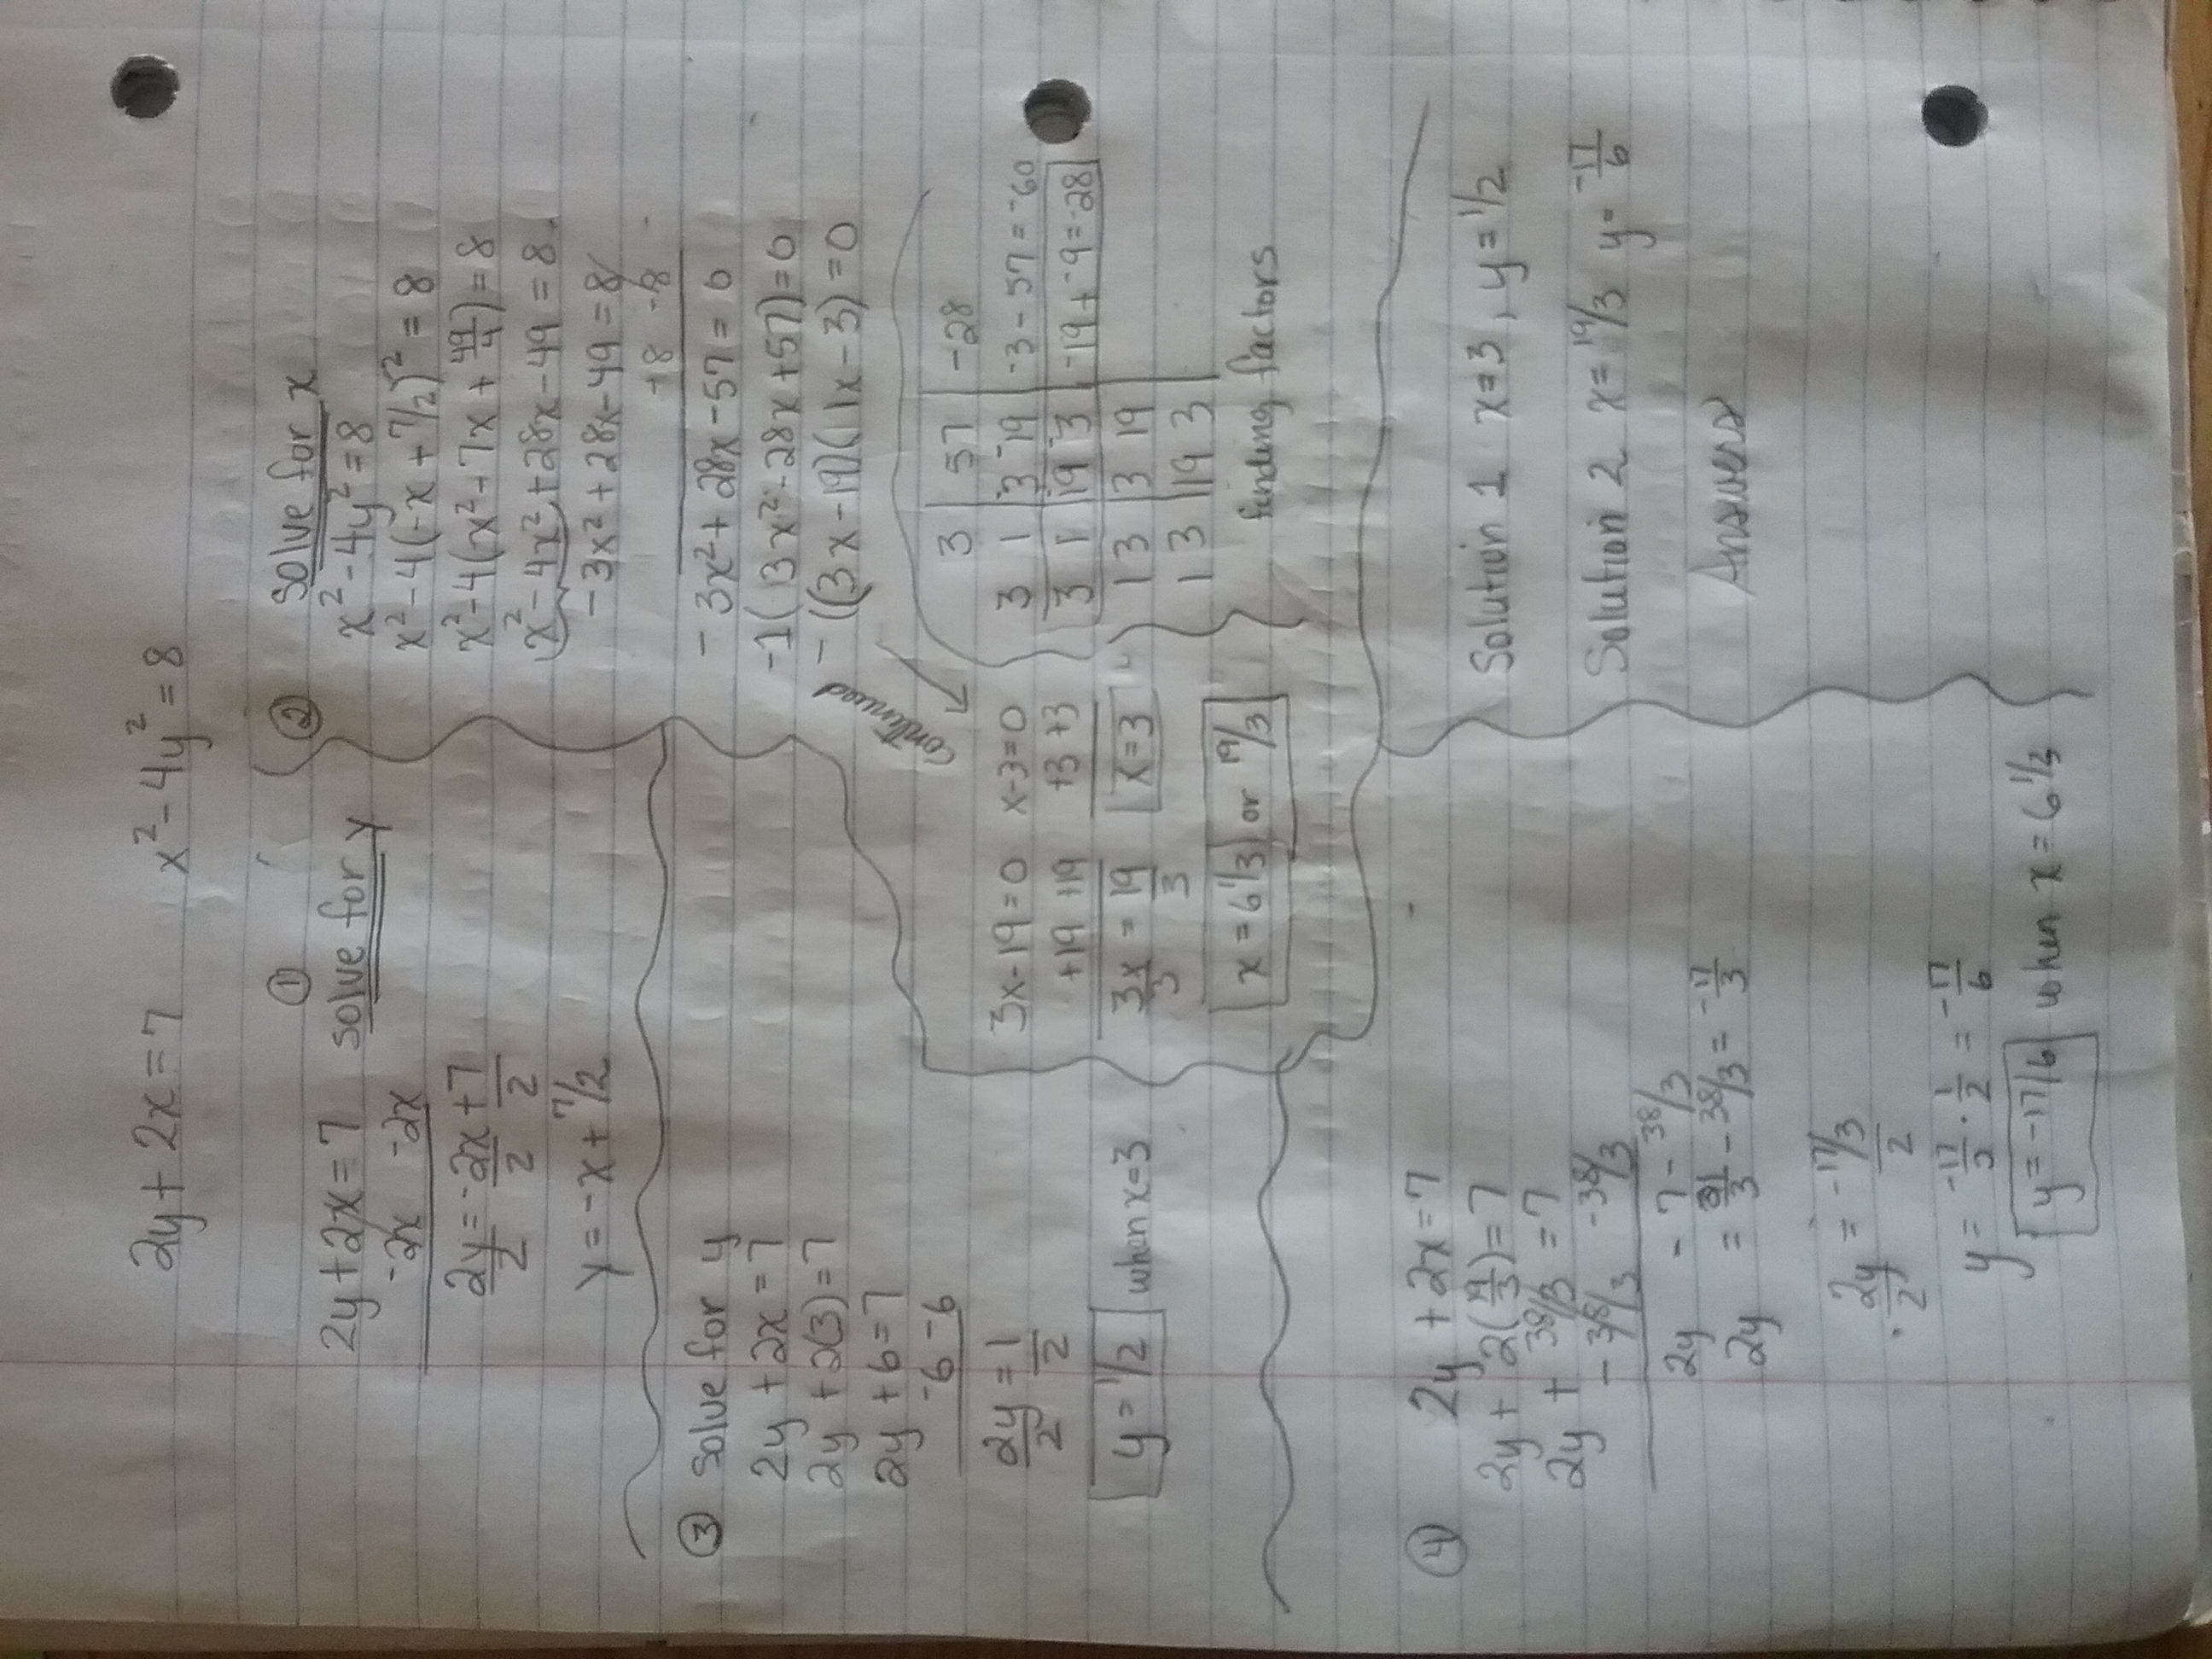 2y + 2x = 7    x² - 4y² = 8
① solve for y
2y + 2x = 7
-2x -2x
2y/2 = -2x/2 + 7/2
y = -x + 7/2
② solve for x
x² - 4y² = 8
x² - 4(-x + 7/2)² = 8
x² - 4(-x² - 7x + 49/4) = 8
x² - 4x² + 28x - 49 = 8
-3x² + 28x - 49 = 8
-8 -8
-3x² + 28x - 57 = 0
-1(3x² - 28x + 57) = 0
-((3x - 19)(1x - 3) = 0
continued
3 | 57 | -28
3 1 | -3 -19 | -3 - 57 = -60
3 1 | -19 -3 | -19 + -9 = -28
1 3 | 3 19
1 3 | 19 3
finding factors
3x - 19 = 0    x - 3 = 0
+19 +19    +3 +3
3x/3 = 19/3    x = 3
x = 6 1/3 or 19/3
③ solve for y
2y + 2x = 7
2y + 2(3) = 7
2y + 6 = 7
-6 -6
2y/2 = 1/2
y = 1/2 when x = 3
④ 2y + 2x = 7
2y + 2(19/3) = 7
2y + 38/3 = 7
- 38/3 -38/3
2y = 7 - 38/3
2y = 21/3 - 38/3 = -17/3
2y/2 = -17/3/2
y = -17/3 · 1/2 = -17/6
y = -17/6 when x = 6 1/3
Solution 1 x = 3, y = 1/2
Solution 2 x = 19/3 y = -17/6
Answers